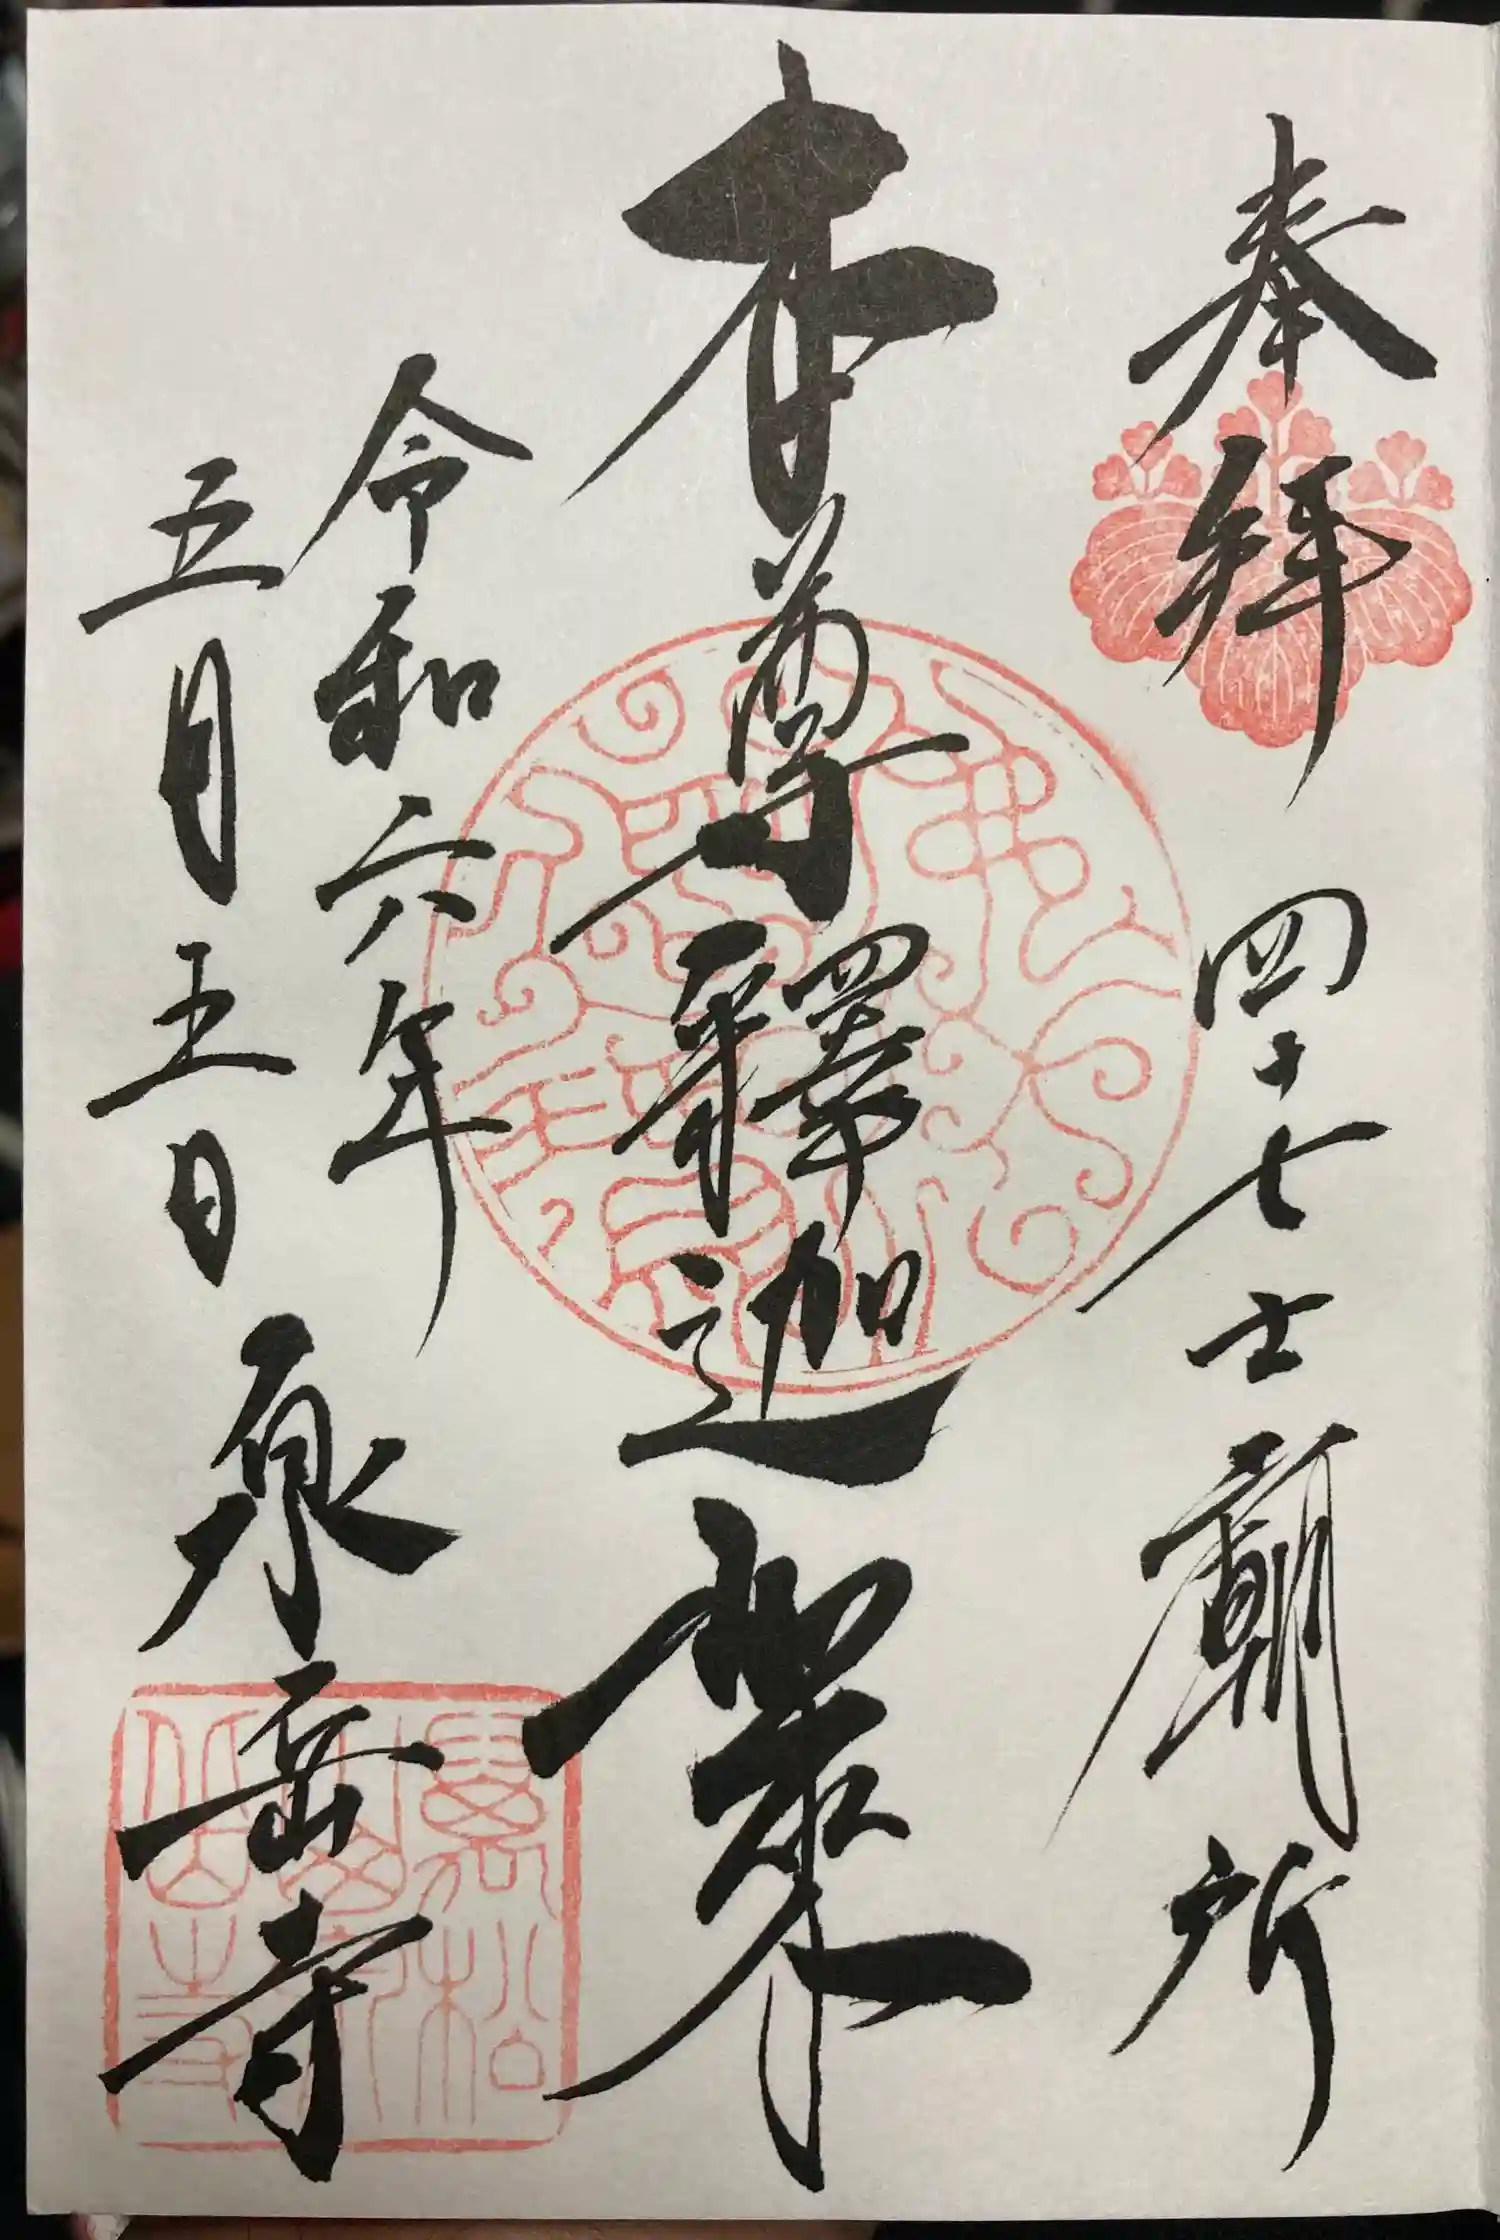 奉拜 四十七士廟所
本尊釋迦如來
令和六年
五月五日
泉岳寺